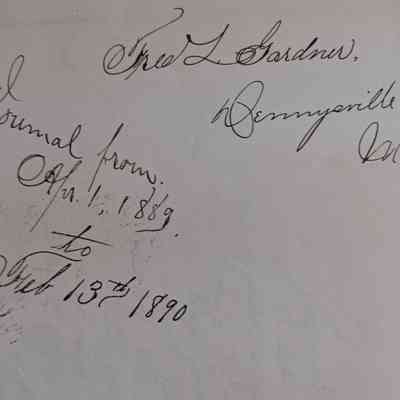 Fred L. Gardner,
Dennysville
M
Journal from
Apr. 1, 1889.
to
Feb 13th 1890